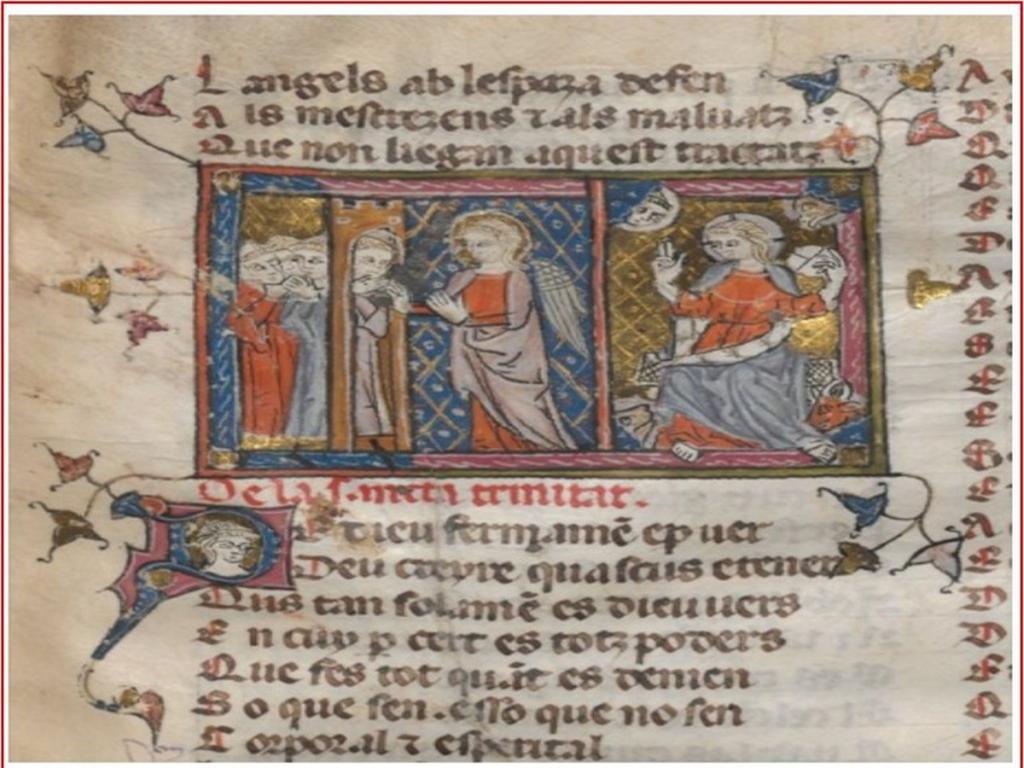 L angels ab lespaza defen
A ls mescrezens ⁊ als maluatz
Que non liegan aquest tractatz
De la sancta trinitat.
P E dieu fermamē ep uer
Deu creyre quascus e tener
Qus tan solamē es dieu uers
E n cuy ꝑ cert es totz poders
Que fes tot quāt es e uenen
S o que sen. esso que no sen
C orporal ⁊ esperital
A
D
Q
E
D
A
S
E
E
A
E
D
D
E
Q
E